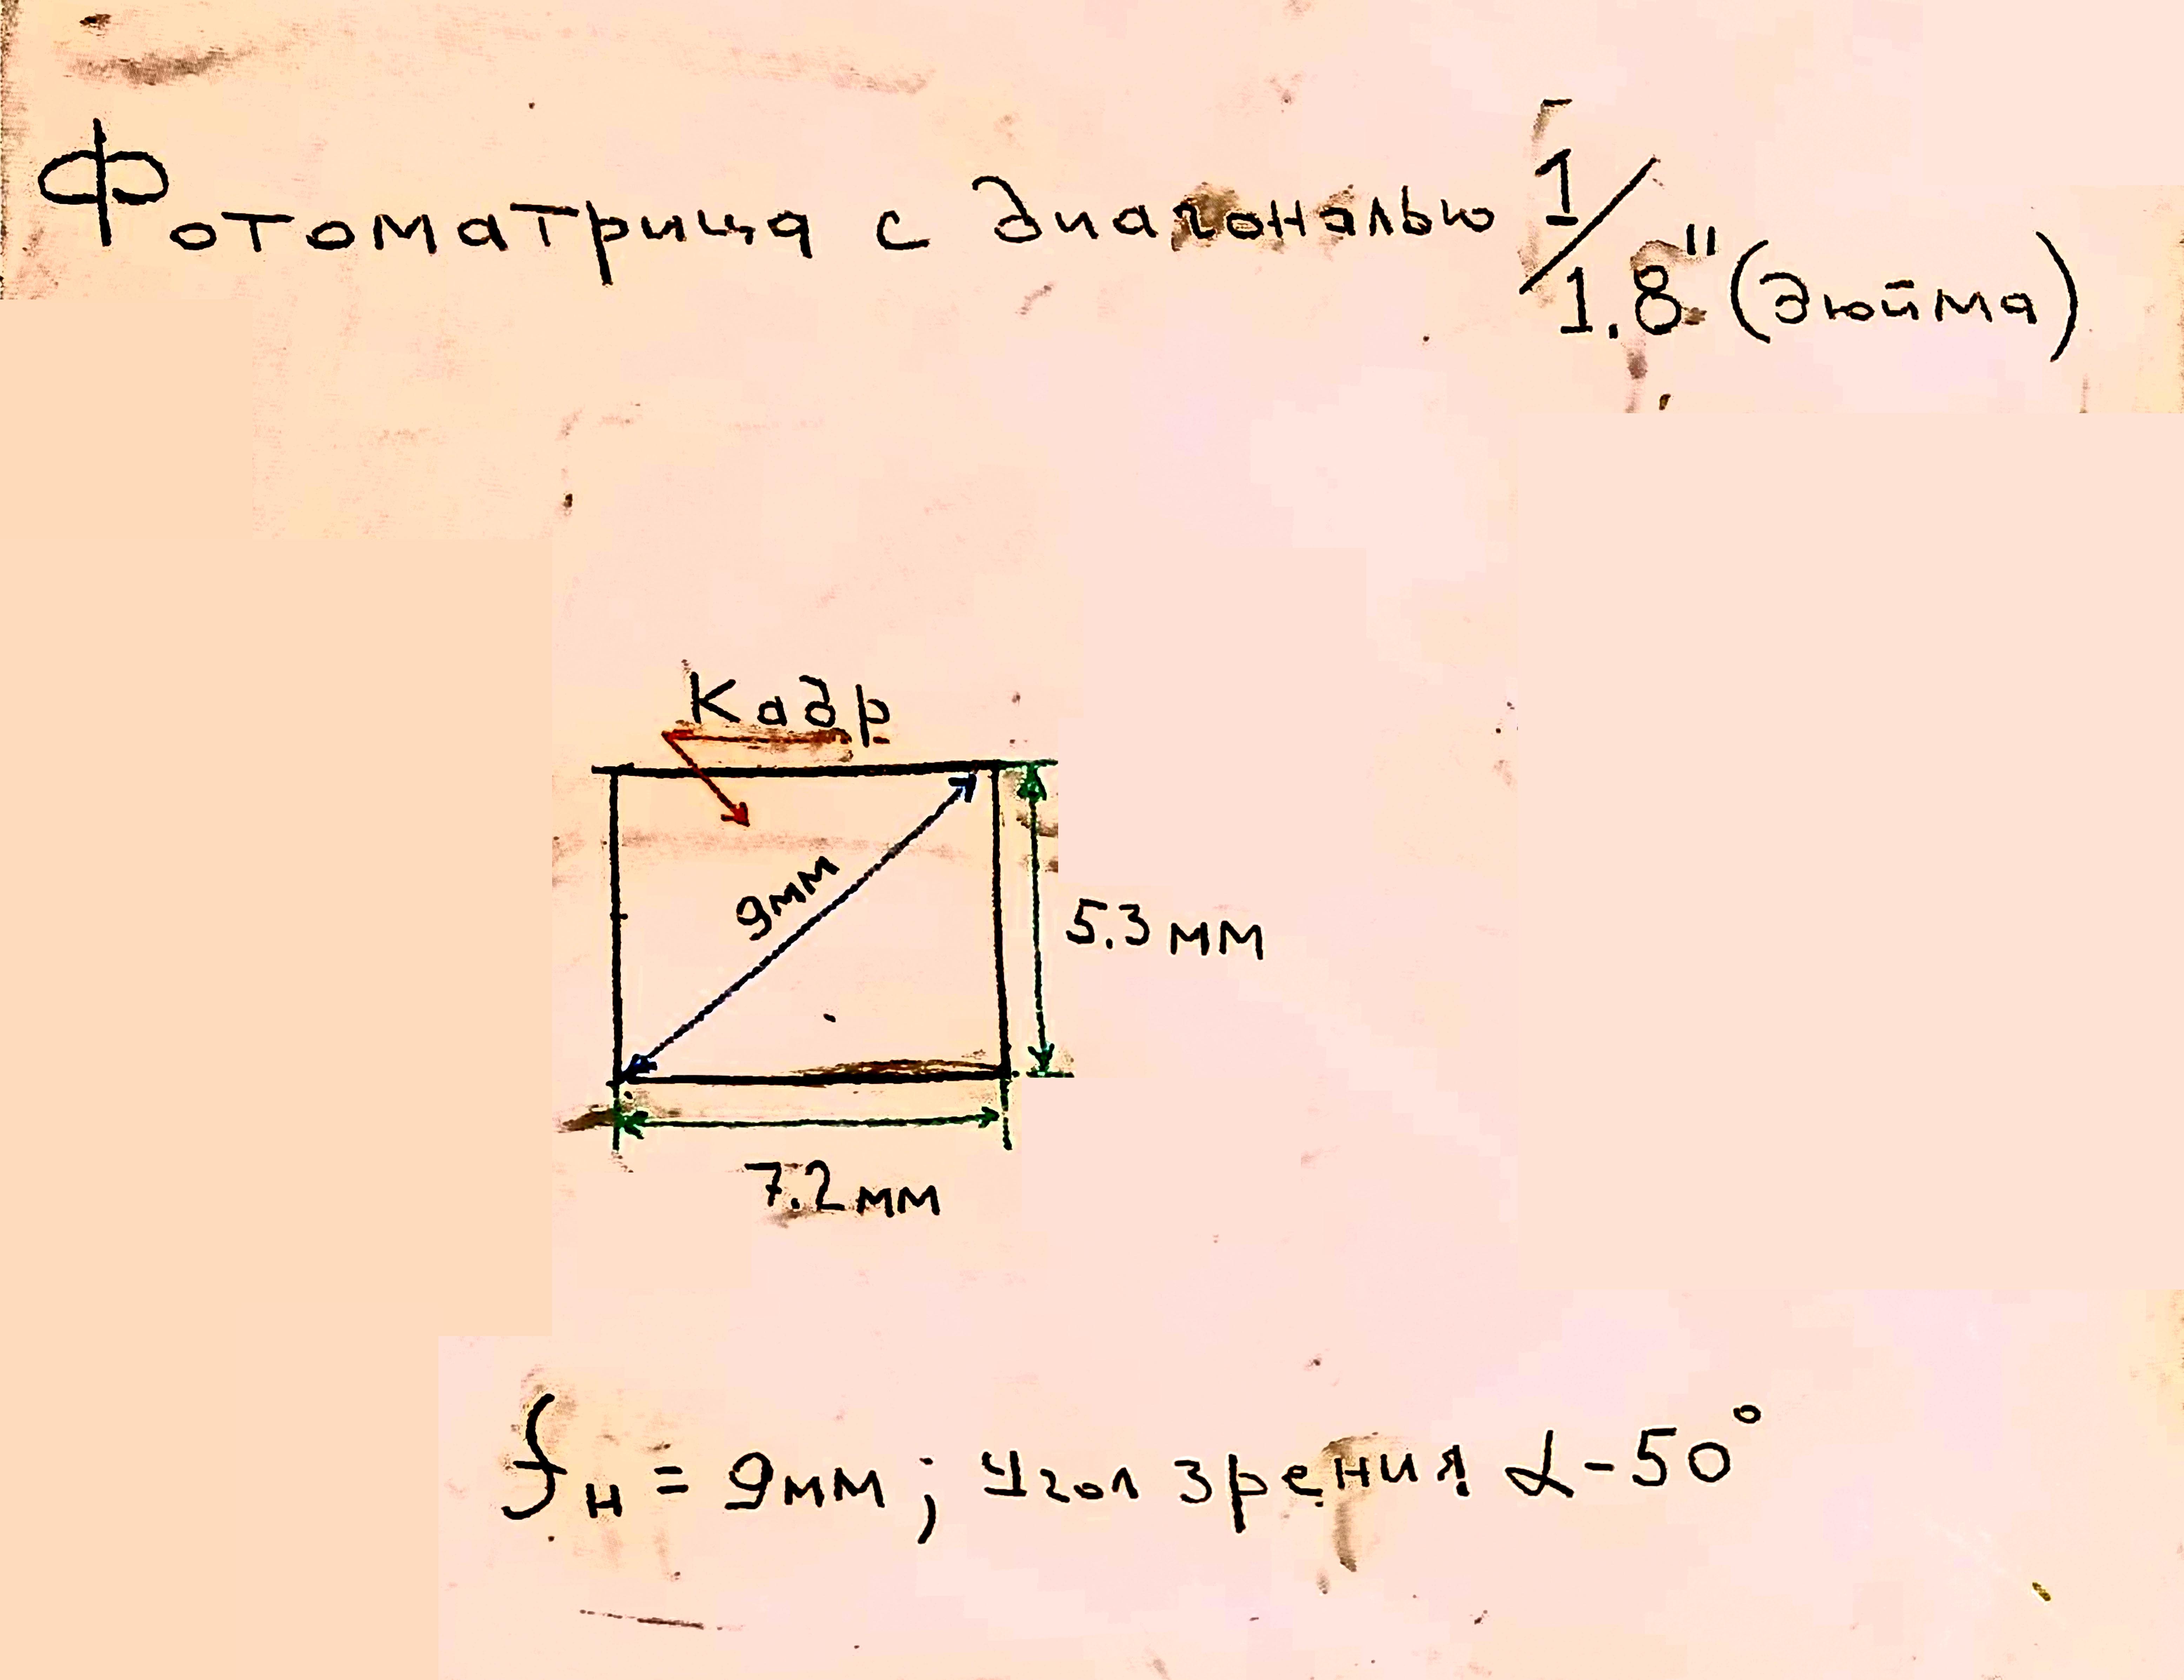 Фотоматрица с диагональю 1/1.8" (дюйма)
Кадр
9мм
5.3 мм
7.2 мм
fн = 9мм; Угол зрения α-50°